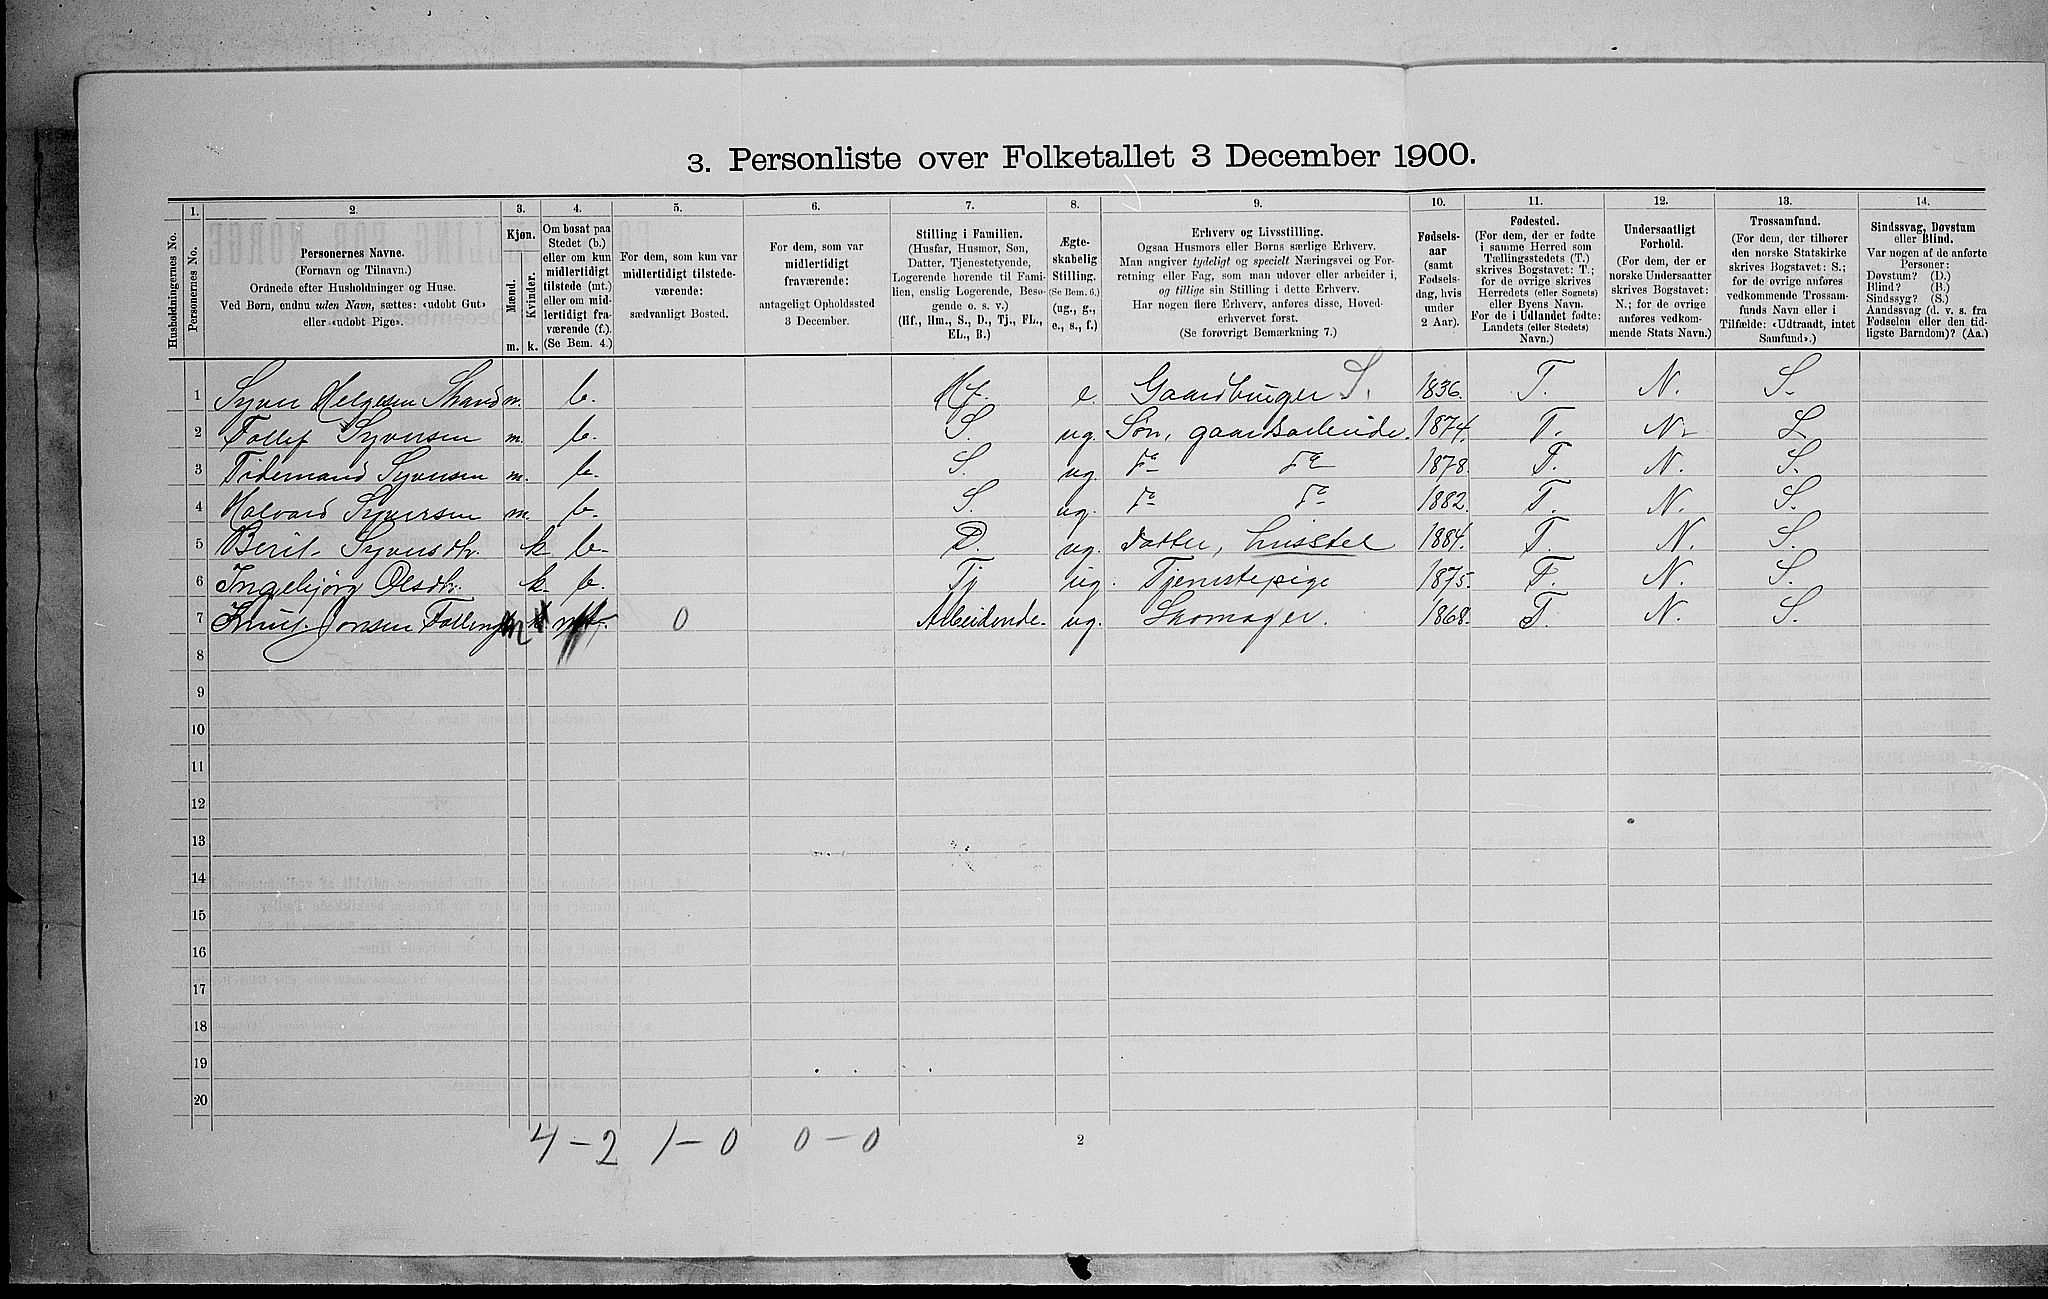 3. Personliste over Folketallet 3 December 1900.
1. 2. 3. 4. 5. 6. 7. 8. 9. 10. 11. 12. 13. 14.
Husholdningernes No.
Personernes No.
Personernes Navne.
(Fornavn og Tilnavn.)
Ordnede efter Husholdninger og Huse.
Ved Børn, endnu uden Navn, sættes: «udøbt Gut»
eller «udøbt Pige».
Kjøn.
Mænd.
Kvinder.
m. k.
Om bosat paa
Stedet (b.)
eller om kun
midlertidigt
tilstede (mt.)
eller om mid-
lertidigt fra-
værende (f.).
(Se Bem. 4.)
For dem, som kun var
midlertidigt tilstede-
værende:
sædvanligt Bosted.
For dem, som var
midlertidigt
fraværende:
antageligt Opholdssted
3 December.
Stilling i Familien.
(Husfar, Husmor, Søn,
Datter, Tjenestetyende,
Logerende hørende til Fami-
lien, enslig Logerende, Besø-
gende o. s. v.)
(Hf., Hm., S., D., Tj., FL.,
EL., B.)
Ægte-
skabelig
Stilling.
(Se Bem. 6.)
(ug., g.,
e., s., f.)
Erhverv og Livsstilling.
Ogsaa Husmors eller Børns særlige Erhverv.
Man angiver tydeligt og specielt Næringsvei og For-
retning eller Fag, som man udover eller arbeider i,
og tillige sin Stilling i dette Erhverv.
Har nogen flere Erhverv, anføres disse, Hoved-
erhvervet først.
(Se forøvrigt Bemærkning 7.)
Fødsels-
aar
(samt
Fødsels-
dag, hvis
under
2 Aar).
Fødested.
(For dem, der er fødte
i samme Herred som
Tællingsstedets (T.)
skrives Bogstavet: T.;
for de øvrige skrives
Herredets (eller Sognets)
eller Byens Navn.
For de i Udlandet fødte:
Landets (eller Stedets)
Navn.)
Undersaatligt
Forhold.
(For dem, der er
norske Undersaatter
skrives Bogstavet:
N.; for de øvrige
anføres vedkom-
mende Stats Navn.)
Trossamfund.
(For dem, der tilhører
den norske Statskirke
skrives Bogstavet: S.;
for de øvrige anføres
vedkommende Trossam-
funds Navn eller i
Tilfælde: «Udtraadt, intet
Samfund».)
Sindssvag, Døvstum
eller Blind.
Var nogen af de anførte
Personer:
Døvstum? (D.)
Blind? (B.)
Sindssyg? (S.)
Aandssvag (d. v. s. fra
Fødselen eller den tid-
ligste Barndom)? (Aa.)
1 Syver Helgesen Strand m. b. Hf. e. Gaardbruger S. 1836. T. N. S.
2 Tollef Syversen m. b. S. ug. Søn, gaardsarbeide. 1874. T. N. S.
3 Tidemand Syversen m. b. S. ug. do do 1878. T. N. S.
4 Halvard Syversen m. b. S. ug. do do 1882. T. N. S.
5 Berit Syversdtr. k. b. D. ug. Datter, husstel 1884. T. N. S.
6 Ingebjørg Olsdtr. k. b. Tj ug. Tjenestepige 1875. T. N. S.
7 Knut Jonsen m mt. 0 Arbeidende. ug. Skomager. 1868. T. N. S.
8
9
10
11
12
13
14
15
16
17
18
19
20
4 – 2 1 – 0 0 – 0
2